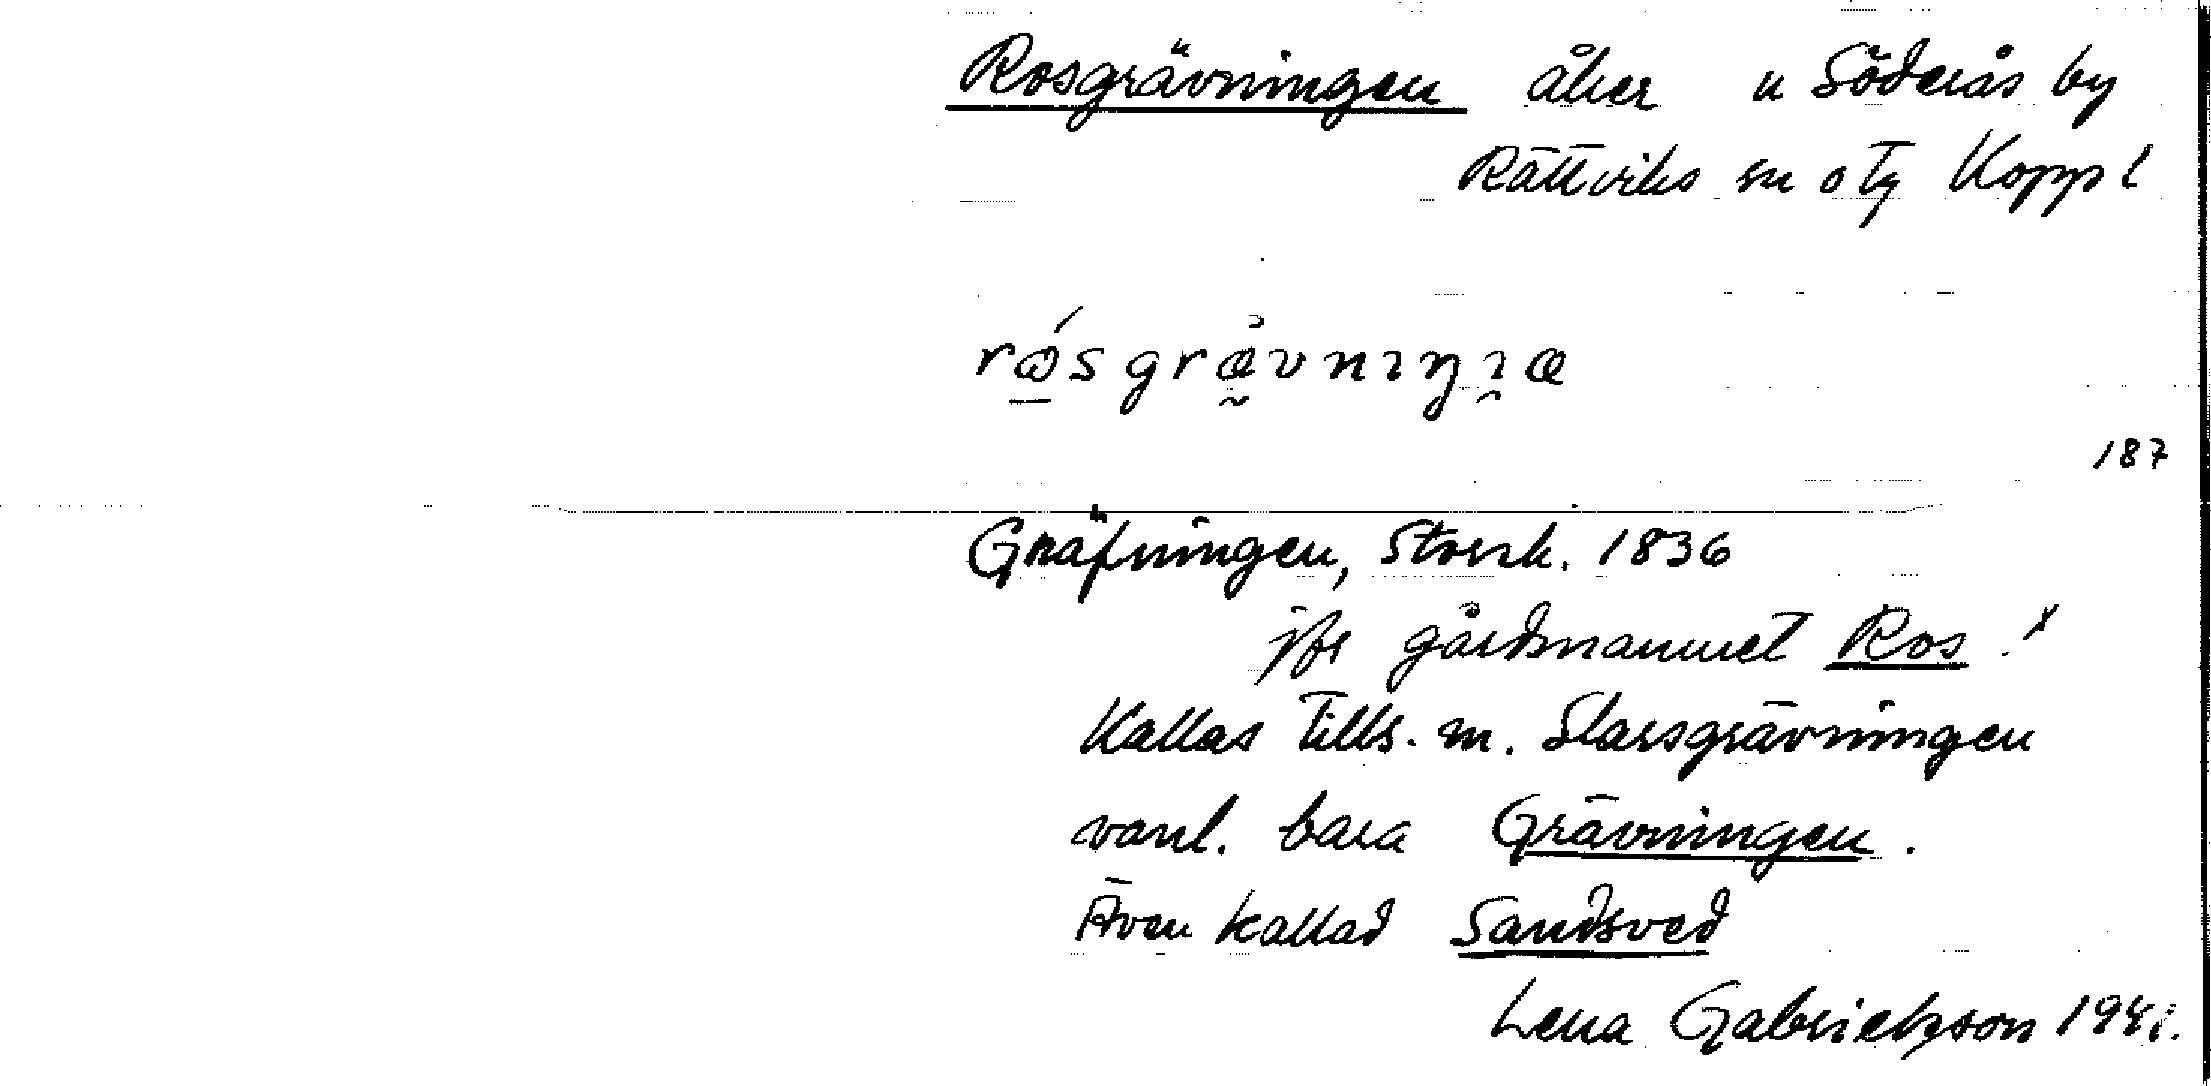 Rosgrävningen åker u Söderås by
Rättviks sn o tg Kopp l
187
Gräfningen, Storsk. 1836
jfr gårdsnamnet Ros.
Kallas tills. m. Slarsgrävningen
vanl. bara Grävningen.
Även kallad Sandsved
Lena Gabrielsson